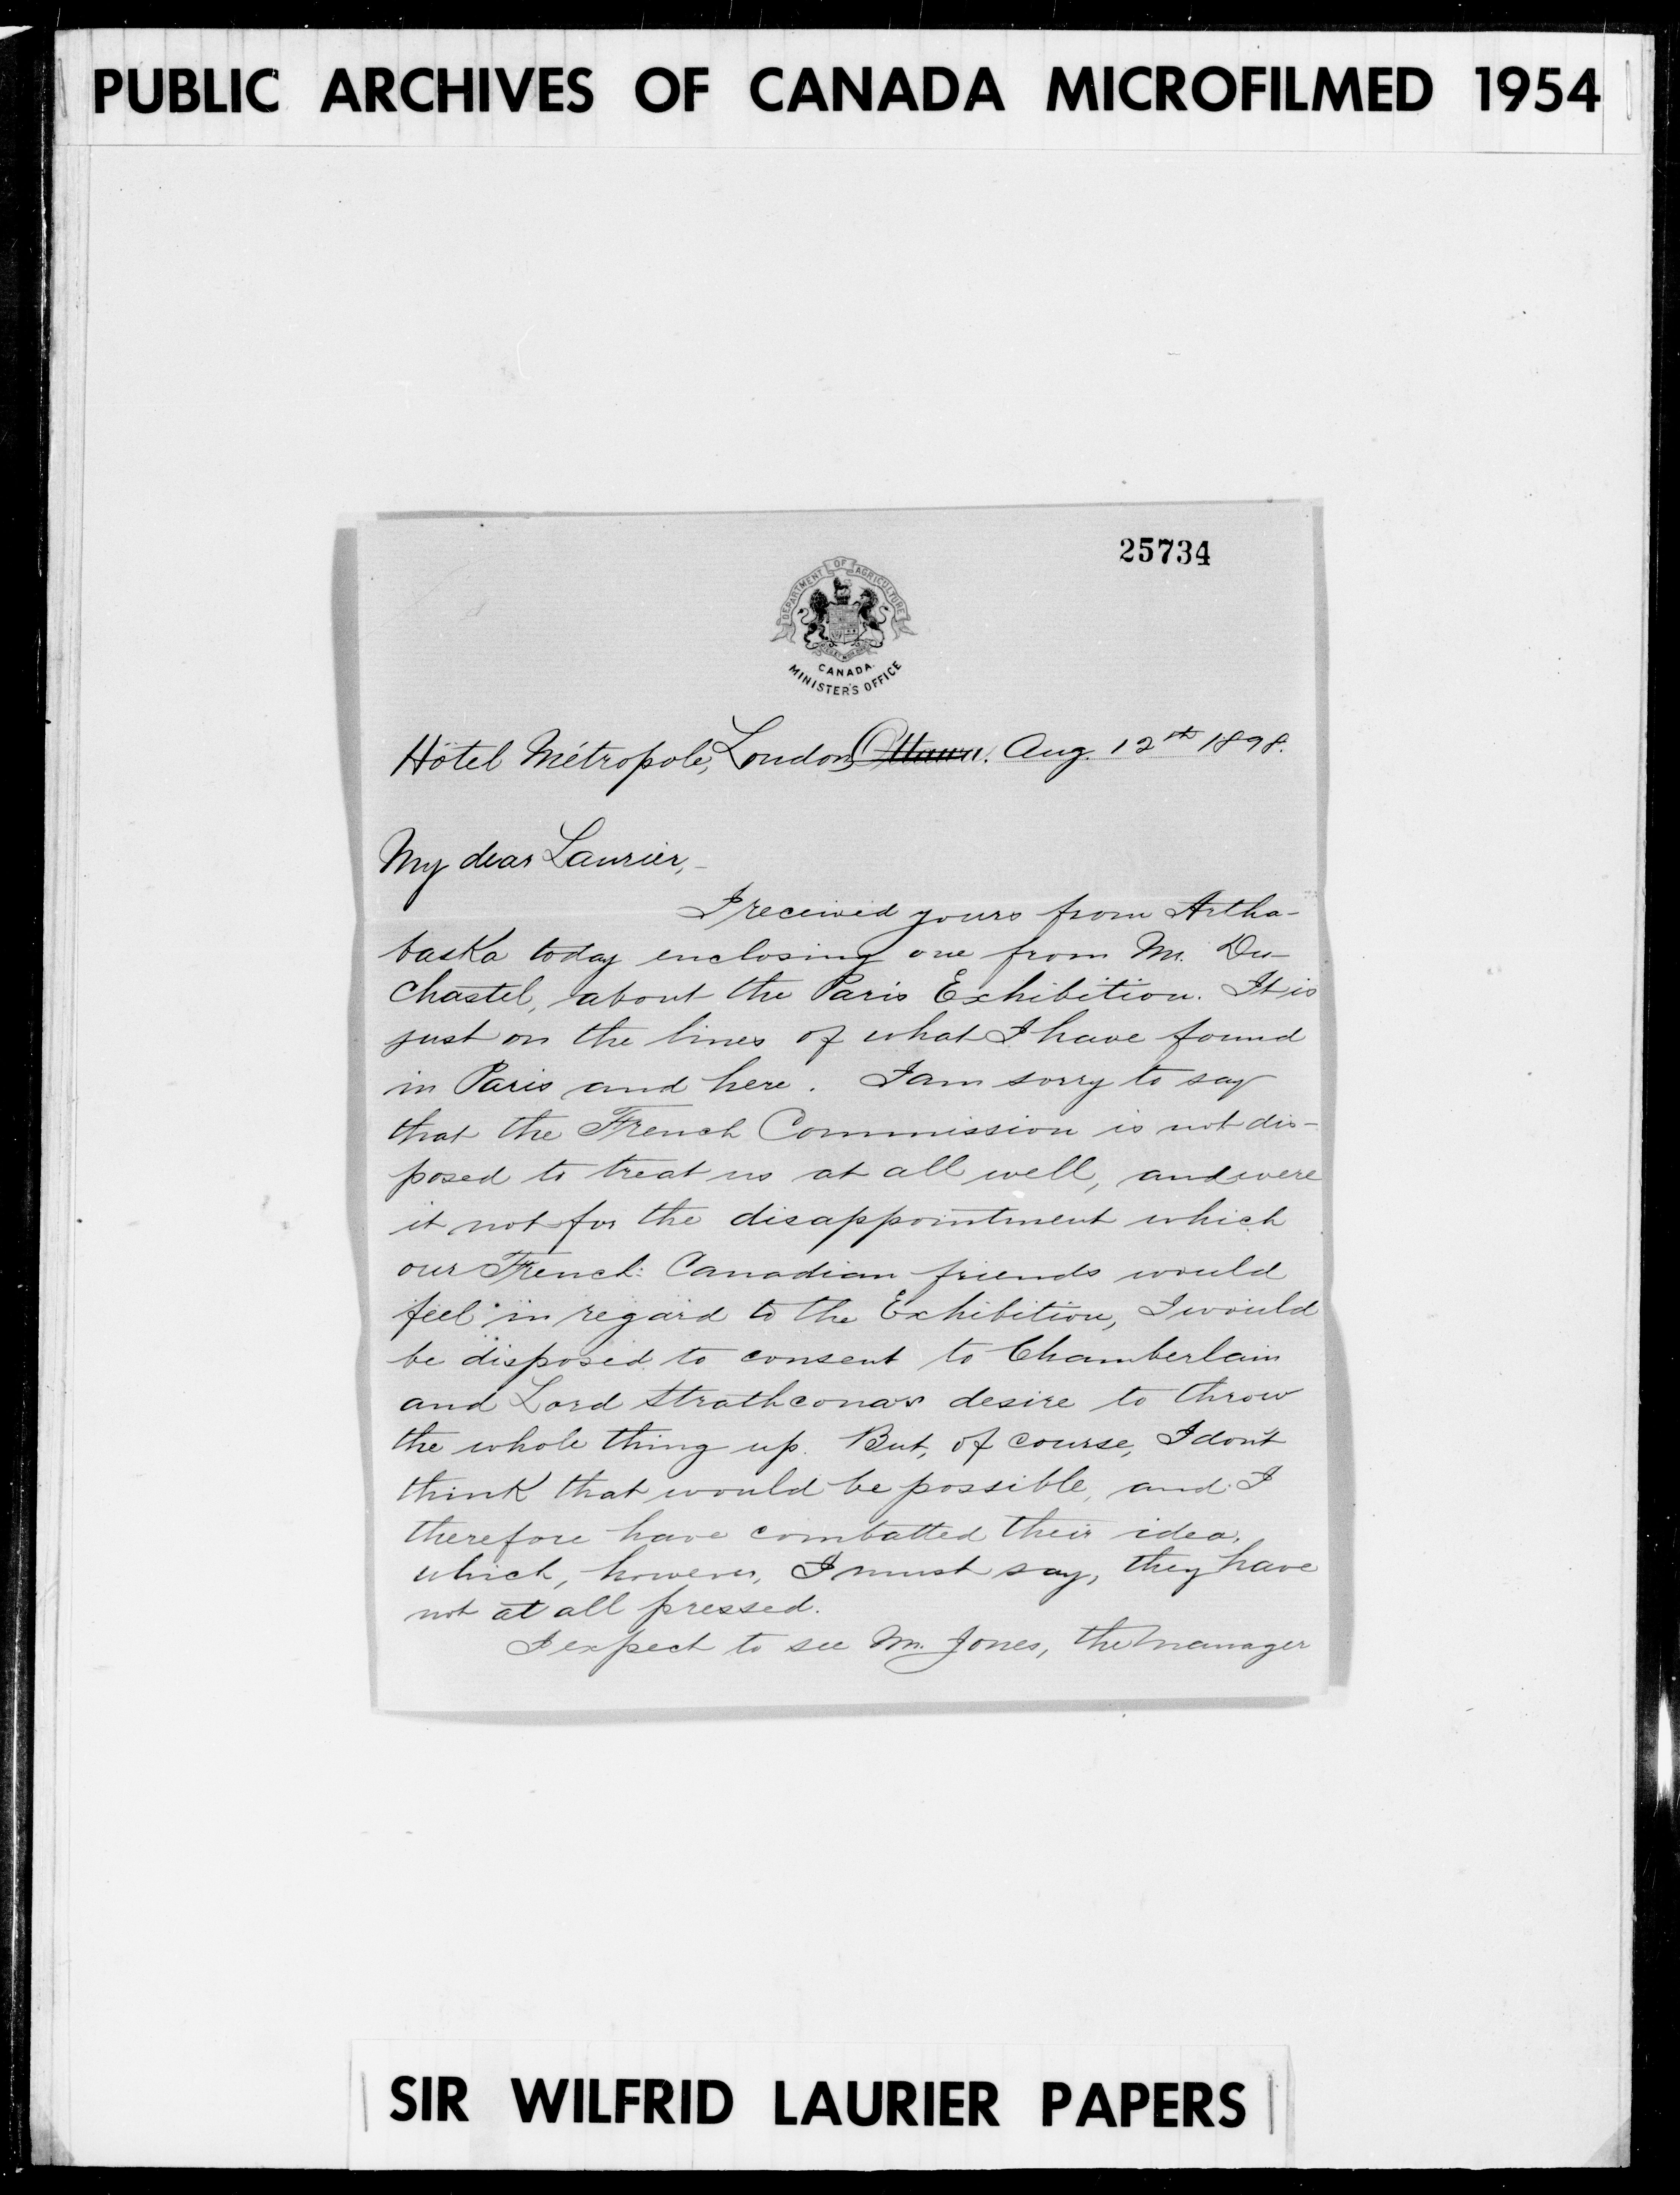 PUBLIC ARCHIVES OF CANADA MICROFILMED 1954
25734
DEPARTMENT OF AGRICULTURE
CANADA.
MINISTER'S OFFICE
Hôtel Métropole, London Ottawa. Aug. 12th 1898.
My dear Laurier,-
I received yours from Artha-
baska today enclosing one from Mr. Du-
Chastel, about the Paris Exhibition. It is
just on the lines of what I have found
in Paris and here. I am sorry to say
that the French Commission is not dis-
posed to treat us at all well, and were
it not for the disappointment which
our French Canadian friends would
feel in regard to the Exhibition, I would
be disposed to consent to Chamberlain
and Lord Strathcona's desire to throw
the whole thing up. But, of course, I don't
think that would be possible, and I
therefore have combatted their idea,
which, however, I must say, they have
not at all pressed.
I expect to see Mr. Jones, the manager
SIR WILFRID LAURIER PAPERS